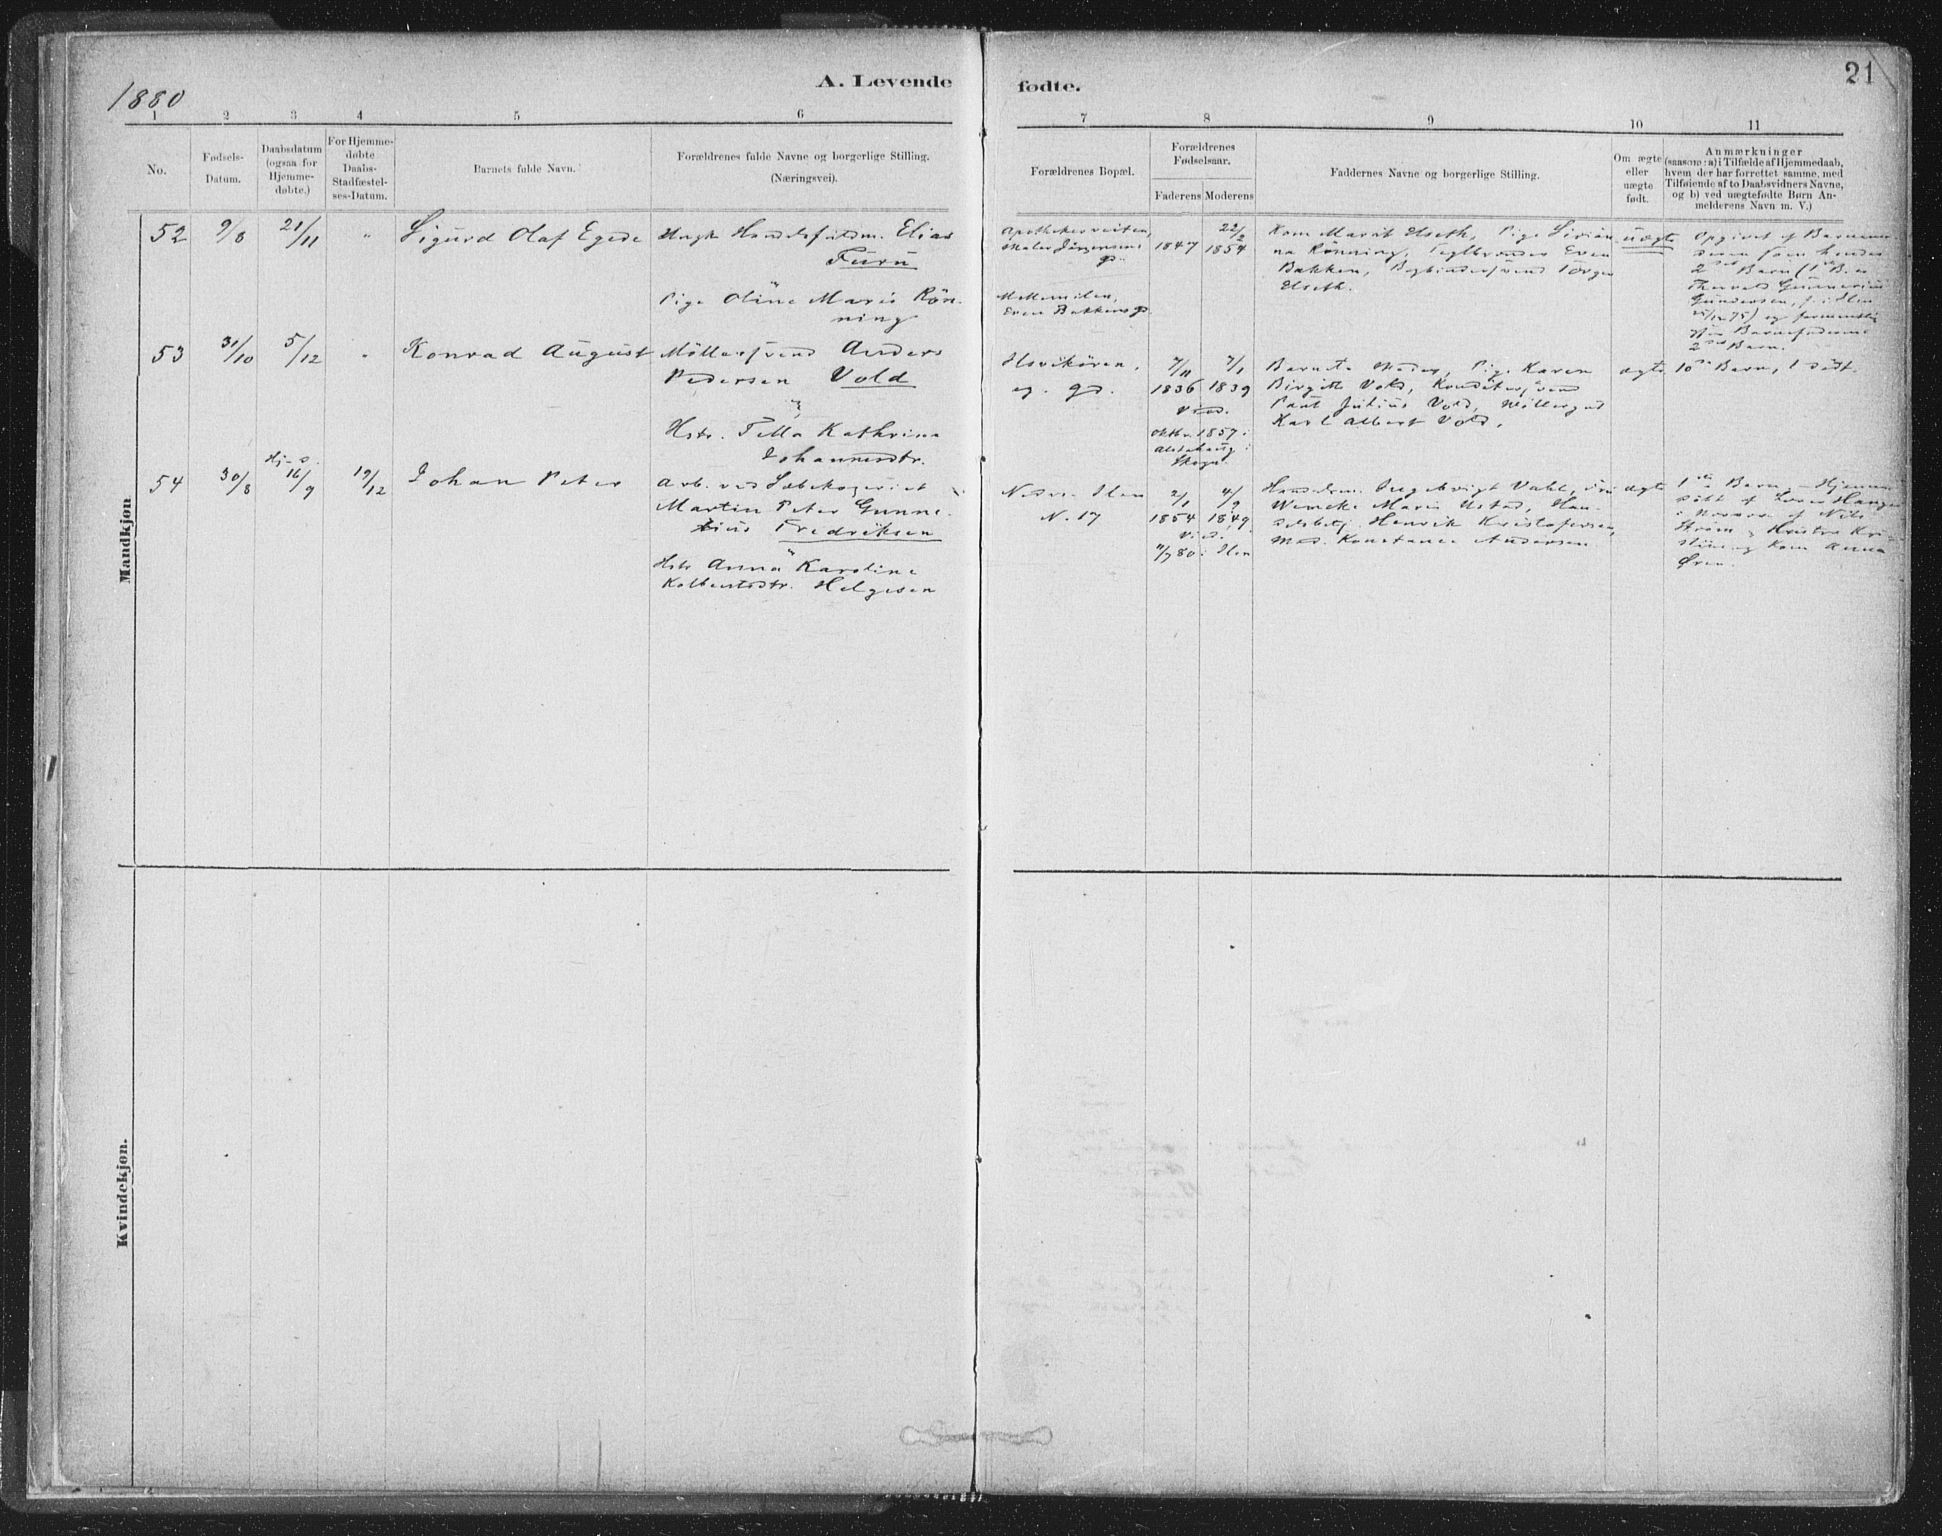 1880
A. Levende
fødte.
21
1 2 3 4 5 6 7 8 9 10 11
No.
Fødsels-
Datum.
Daabsdatum
(ogsaa for
Hjemme-
døbte.)
For Hjemme-
døbte
Daabs-
Stadfæstel-
ses-Datum.
Barnets fulde Navn.
Forældrenes fulde Navne og borgerlige Stilling.
(Næringsvei).
Forældrenes Bopæl.
Forældrenes
Fødselsaar.
Faderens Moderens
Faddernes Navne og borgerlige Stilling.
Om ægte
eller
uægte
født.
Anmærkninger
(saasom: a) i Tilfælde af Hjemmedaab,
hvem der har forrettet samme, med
Tilføiende af to Daabsvidners Navne,
og b) ved uægtefødte Børn An-
melderens Navn m. V.)
Mandkjøn
52 9/8 21/11 "
Sigurd Olaf Egede
Ungk Elias
Furu
Pige Oline Marie Røn-
ning
Apothekerveiten,
Maler Jørgensens
gd.
Mellemilen,
Even Bakkens gd.
1847
22/2
1854
Kone Marit Elseth, Pige
na Rønning, Even
Bakken, Bogbindersvend
Elseth.
uægte
Opgivet af Barnemo-
deren som hendes
2det Barn (1ste B. er
Gunnerius
Gundersen, f. i Ilen
75) og formentlig
Barnefaderens
2det Barn.
53 31/10 5/12 "
Konrad August
Møllersvend Anders
Pedersen Vold
Hstr. Kathrina
Johannesdtr.
Ilsvikøren,
eg. gd.
7/11
1836
7/1
1839
Viede
1857 i
Skogn.
Barnets Moder, Pige Karen
Birgitte Vold, Konditorsvend
Paul Julius Vold, Møllersvend
Karl Albert Vold.
ægte
10de Barn, 1 død.
54 30/8
Hj. d.
16/9 19/12
Johan Peter
Arb. ved Sæbekogeriet
Martin Peter Gunne-
rius Fredriksen
Hstr Anna Karoline
Helgesen
Nedre Ilen
N. 17
2/1
1854
4/9
1849
Viede
80 i Ilen
Handelsm. Ingebrigt Vahl,
Wencke Marie Ustad, Han-
delsbetj. Henrik Kristofersen,
Mad. Konstance Andersen
ægte
1ste Barn, – Hjemme-
døbt af
i Nærvær af Nils
Strøm
Kone Anna
Øren.
Kvindekjøn.